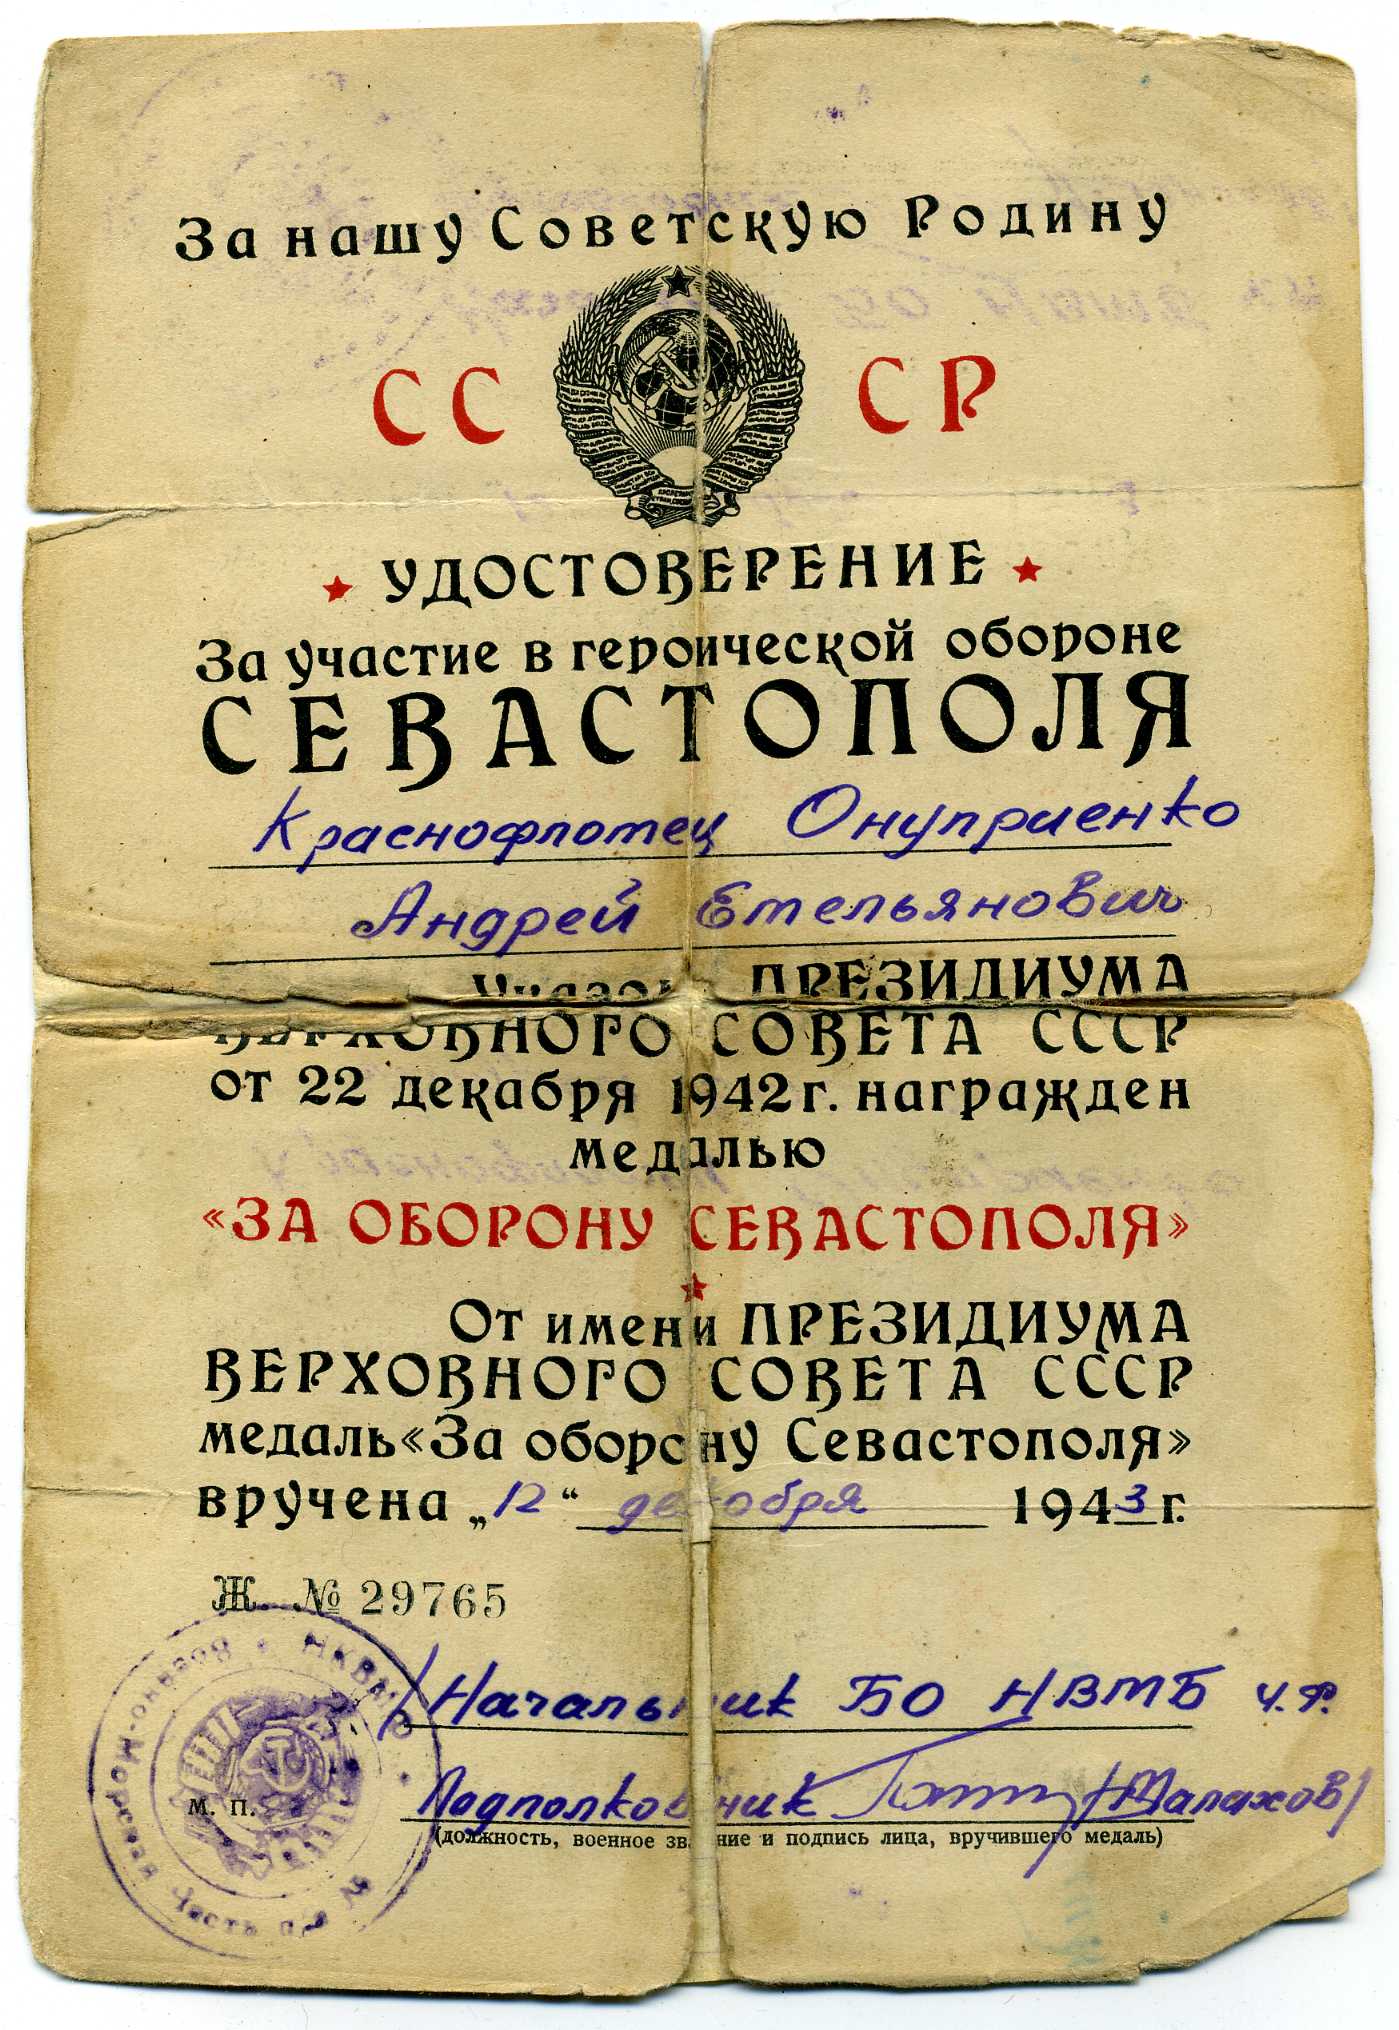 За нашу Советскую Родину
СССР
УДОСТОВЕРЕНИЕ
За участие в героической обороне
СЕВАСТОПОЛЯ
Краснофлотец Онуприенко
Андрей Емельянович
Указом ПРЕЗИДИУМА
ВЕРХОВНОГО СОВЕТА СССР
от 22 декабря 1942 г. награжден
медалью
«ЗА ОБОРОНУ СЕВАСТОПОЛЯ»
От имени ПРЕЗИДИУМА
ВЕРХОВНОГО СОВЕТА СССР
медаль «За оборону Севастополя»
вручена „12“ декабря 1943 г.
Ж. № 29765
Начальник БО НВМБ Ч.Ф.
М. П.
Подполковник /Малахов/
(должность, военное звание и подпись лица, вручившего медаль)
НКВМФ • Военно-Морская Часть п/я №